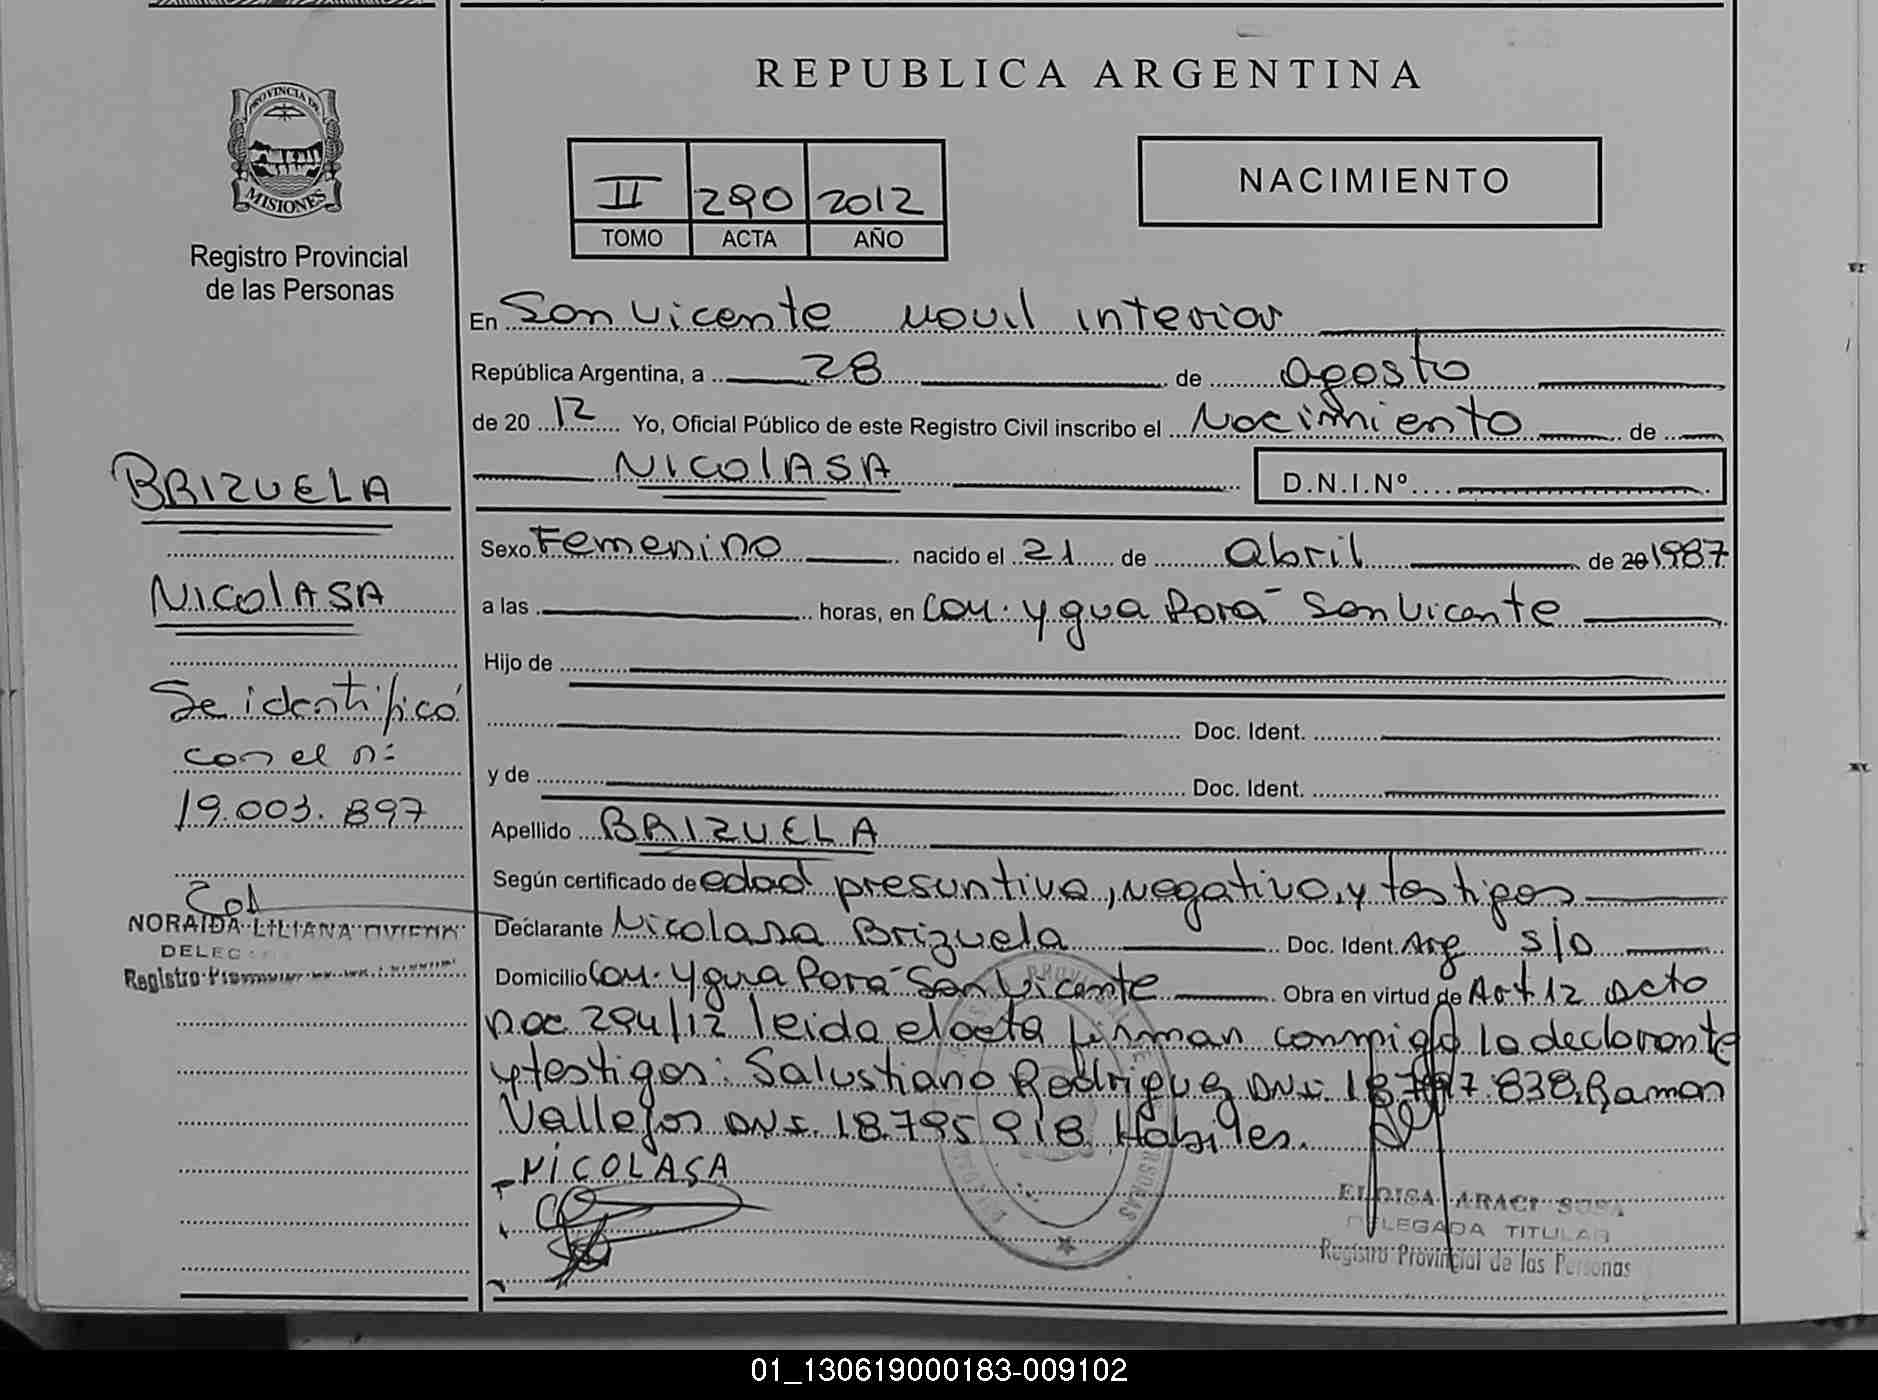 REPUBLICA ARGENTINA
PROVINCIA DE
MISIONES
Registro Provincial
de las Personas
II 290 2012
TOMO ACTA AÑO
NACIMIENTO
En San Vicente Movil interior
República Argentina, a 28 de agosto
de 20 12 Yo, Oficial Público de este Registro Civil inscribo el Nacimiento de
NICOLASA D.N.I.Nº
BRIZUELA
NICOLASA
Se identificó
con el nº
19.003.897
NORAIDA LILIANA
DELEG
Registro
Sexo Femenino nacido el 21 de abril de 20 1987
a las horas, en Col. Ygua Porá San Vicente
Hijo de
Doc. Ident.
y de Doc. Ident.
Apellido BRIZUELA
Según certificado de edad presuntiva, negativo, y testigos
Declarante Nicolasa Brizuela Doc. Ident. Arg s/D
Domicilio Col. Ygua Porá San Vicente Obra en virtud de Art 12 acto
294/12 leida el acta firman conmigo la declarante
y testigos: Salustiano Rodriguez DNI. 838, Ramon
Vallejos DNI. 18.795 918 Habiles.
NICOLASA
ELOISA ARACI SOSA
DELEGADA TITULAR
Registro Provincial de las Personas
01_130619000183-009102